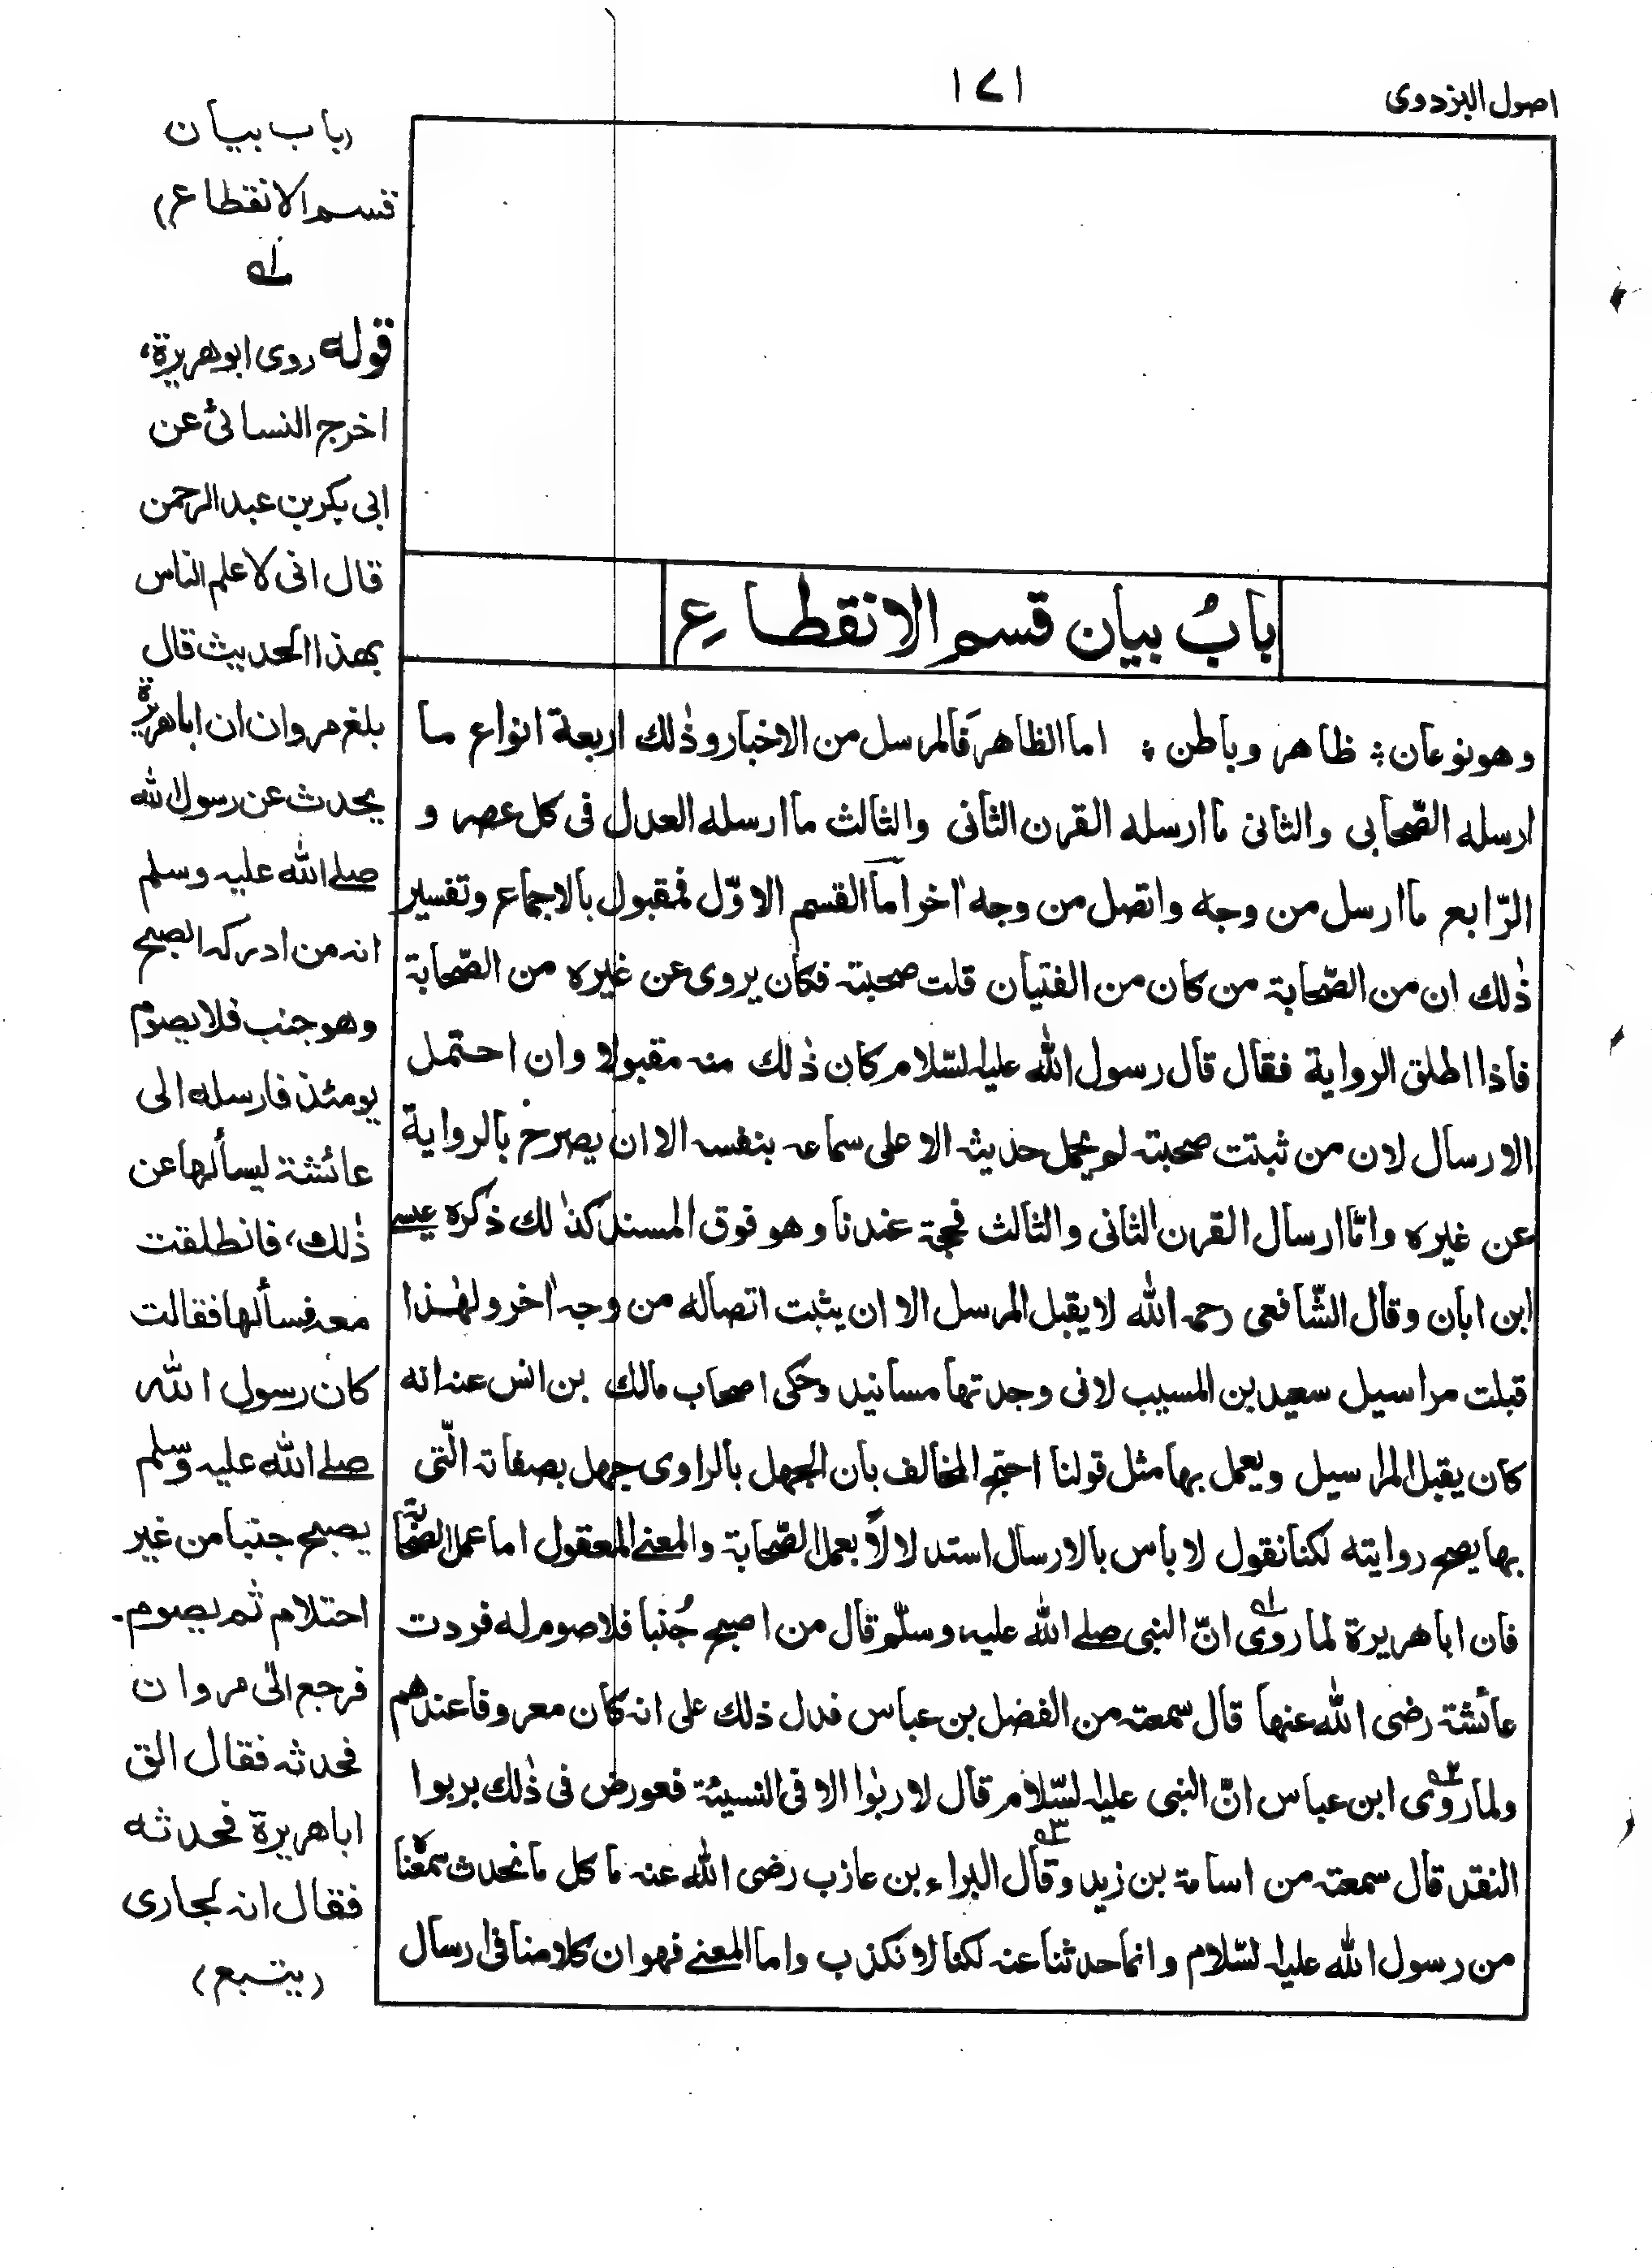 اصول البزدوی
۱۷۱
باب بیان قسم الانقطاع
وهو نوعان ؛ ظاهر وباطن ؛ اما الظاهر فالمرسل من الاخبار وذٰلك اربعة انواع ما
ارسله الصّحابی والثانی ما ارسله القرن الثانی والثالث ما ارسله العدل فی کل عصر و
الرّابع ما ارسل من وجه واتصل من وجه اٰخر اما القسم الاوّل فمقبول بالاجماع وتفسیر
ذٰلك ان من الصّحابة من کان من الفتیان قلت صحبته فکان یروی عن غیره من الصّحابة
فاذا اطلق الروایة فقال قال رسول الله علیه السّلام کان ذٰلك منه مقبولا وان احتمل
الارسال لان من ثبتت صحبته لم یحمل حدیثه الا علی سماعه بنفسه الا ان یصرح بالروایة
عن غیره وامّا ارسال القرن الثانی والثالث فحجة عندنا وهو فوق المسند کذٰلك ذکره عیسے
ابن ابان وقال الشّافعی رحمه الله لا یقبل المرسل الا ان یثبت اتصاله من وجه اٰخر ولهٰذا
قبلت مراسیل سعید بن المسیب لانی وجدتها مسانید وحکی اصحاب مالك بن انس عنه انه
کان یقبل المراسیل ویعمل بها مثل قولنا احتج المخالف بان الجهل بالراوی جهل بصفاته الّتی
بها یصح روایته لکنا نقول لا باس بالارسال استدلالاً بعمل الصّحابة والمعنے المعقول اما عمل الصّحابة
فان اباهریرة لما روی ۱ه انّ النبی صلے الله علیه وسلّم قال من اصبح جُنبا فلا صوم له فردت
عائشة رضی الله عنها قال سمعته من الفضل بن عباس فدل ذلك علی انه کان معروفا عندهم
ولما روی ۲ه ابن عباس انّ النبی علیه السّلام قال لا ربٰوا الا فی النسیئة فعورض فی ذٰلك بربوا
النقد قال سمعته من اسامة بن زید وقال ۳ه البراء بن عازب رضی الله عنه ما کل ما نحدث سمعناه
من رسول الله علیه السّلام وانما حدثنا عنه لکنا لا نکذب واما المعنے فهو ان کلامنا فی ارسال
(باب بیان
قسم الانقطاع)
۱ه
قوله روی ابوهریرة،
اخرج النسائی عن
ابی بکر بن عبد الرحمن
قال انی لاعلم الناس
بهذا الحدیث قال
بلغ مروان ان اباهریرة
یحدث عن رسول الله
صلے الله علیه وسلم
انه من ادرکه الصبح
وهو جنب فلا یصوم
یومئذ فارسله الی
عائشة لیسألها عن
ذٰلك، فانطلقت
معه فسألها فقالت
کان رسول الله
صلے الله علیه وسلم
یصبح جنبا من غیر
احتلام ثم یصوم.
فرجع الی مروان
فحدثه فقال الق
اباهریرة فحدثه
فقال انه لجاری
(یتبع)